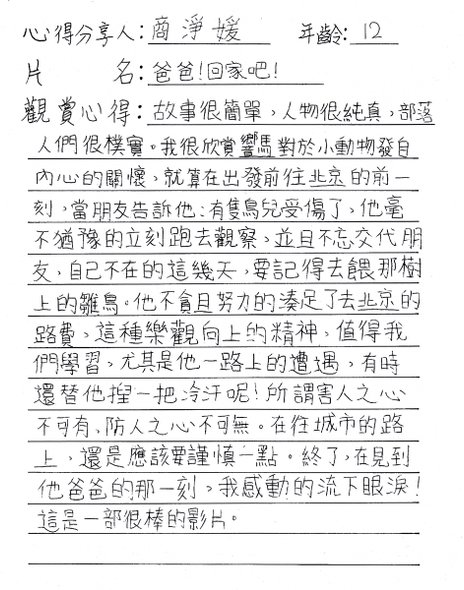 心得分享人：商淨媛 年齡：12
片名：爸爸！回家吧！
觀賞心得：故事很簡單，人物很純真，部落
人們很樸實。我很欣賞響馬對於小動物發自
內心的關懷，就算在出發前往北京的前一
刻，當朋友告訴他：有隻鳥兒受傷了，他毫
不猶豫的立刻跑去觀察，並且不忘交代朋
友，自己不在的這幾天，要記得去餵那樹
上的雛鳥。他不貪且努力的湊足了去北京的
路費，這種樂觀向上的精神，值得我
們學習，尤其是他一路上的遭遇，有時
還替他捏一把冷汗呢！所謂害人之心
不可有，防人之心不可無。在往城市的路
上，還是應該要謹慎一點。終了，在見到
他爸爸的那一刻，我感動的流下眼淚！
這是一部很棒的影片。